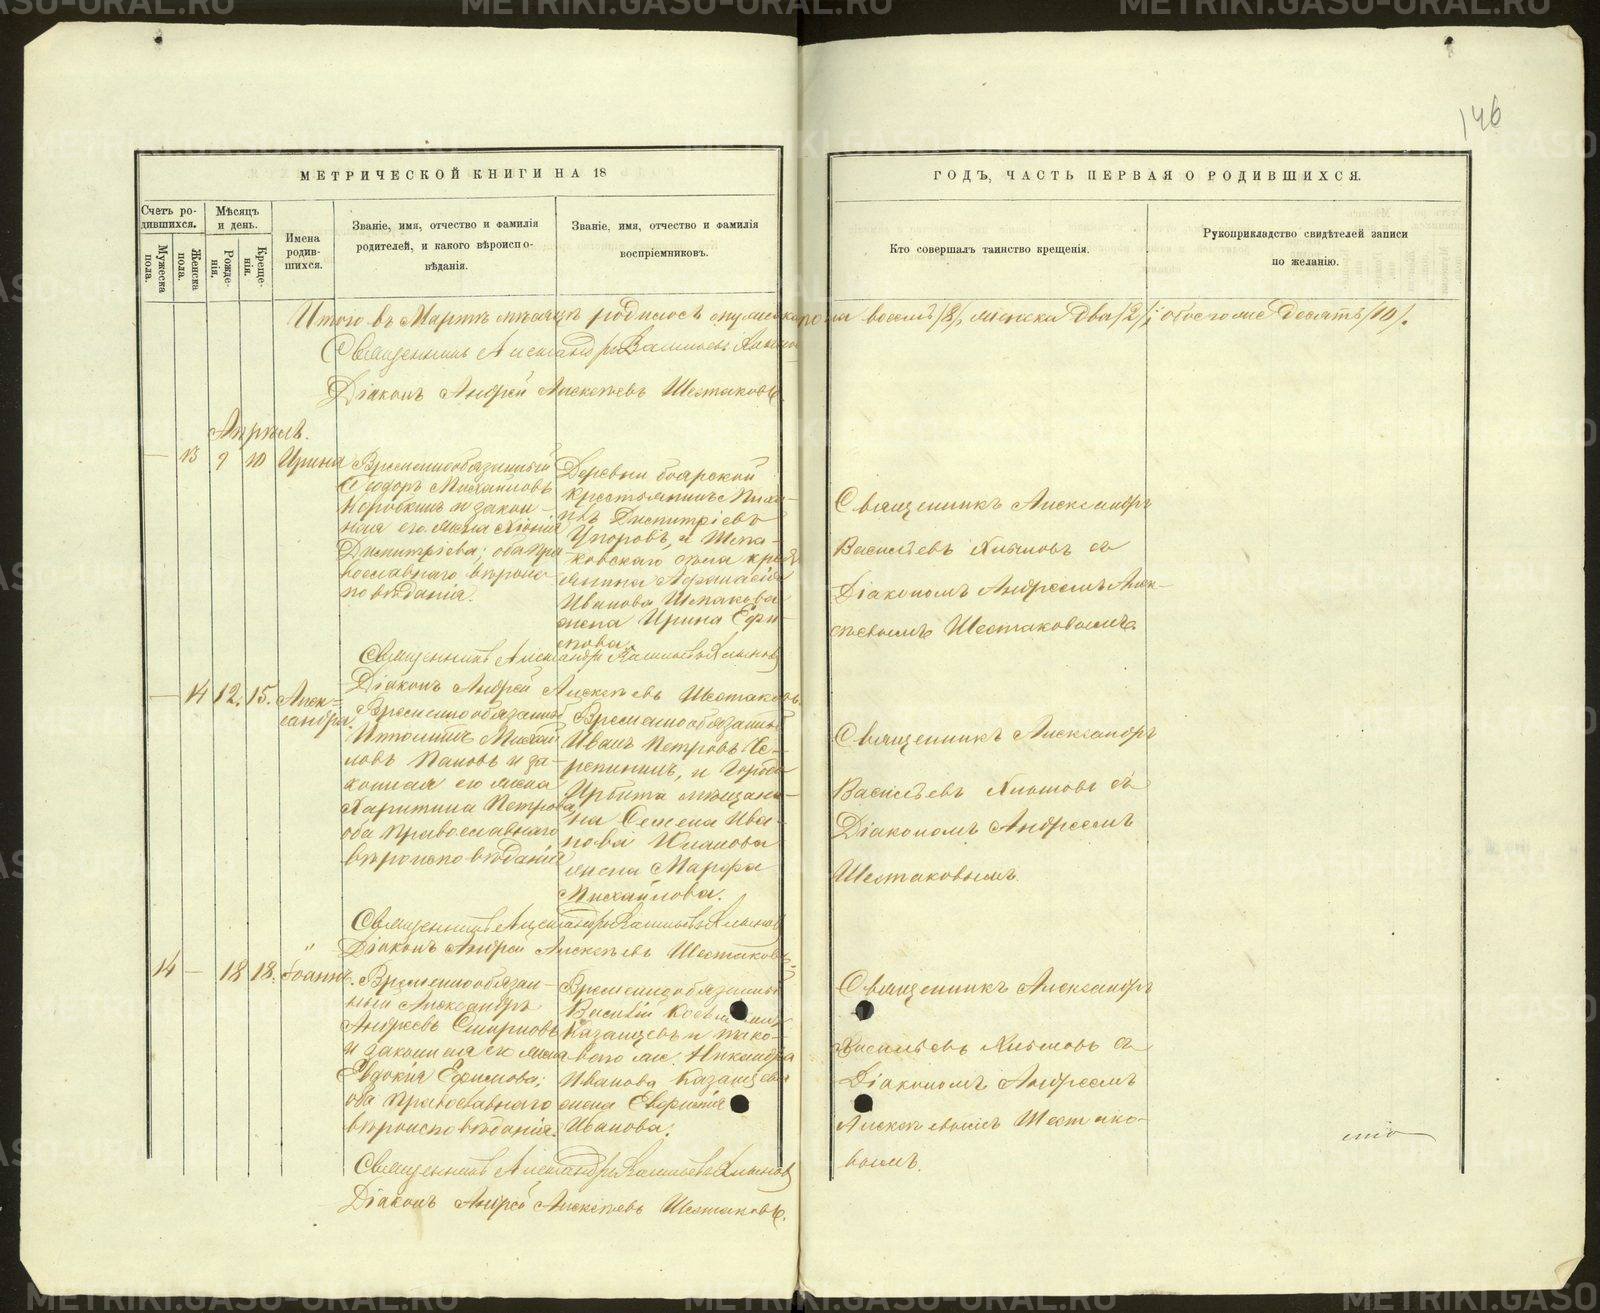 146
МЕТРИЧЕСКОЙ КНИГИ НА 18
ГОДЪ, ЧАСТЬ ПЕРВАЯ О РОДИВШИХСЯ.
Счетъ ро-
дившихся.
Мужеска
пола.
Женска
пола.
Мѣсяцъ
и день.
Рожде-
нія.
Креще-
нія.
Имена
родив-
шихся.
Званіе, имя, отчество и фамилія
родителей, и какого вѣроиспо-
вѣданія.
Званіе, имя, отчество и фамилія
воспріемниковъ.
Кто совершалъ таинство крещенія.
Рукоприкладство свидѣтелей записи
по желанію.
Итого въ Мартѣ мѣсяцѣ родилось мужеска пола восемь /8/, женска два /2/, обоего же десять /10/.
Священникъ Александръ Васильевъ
Діаконъ Андрей Алексѣевъ Шестаковъ.
Апрѣль.
— 13 9 10 Ирина
Временнообязанный
Ѳеодоръ Михайловъ
Коробкинъ и закон-
ная его жена
Димитріева; оба пра
вославнаго вѣроис-
повѣданія.
Деревни боярской
крестьянинъ
Димитріевъ
Упоровъ, и Шма-
ковскаго села крест
янина Афанасія
Иванова Шмакова
жена Ирина Ефи-
мова.
Священникъ Александръ
Васильевъ съ
Діакономъ Андреемъ Алек-
сѣевымъ Шестаковымъ.
Священникъ Александръ Васильевъ
Діаконъ Андрей Алексѣевъ Шестаковъ.
— 14 12. 15. Алек-
сандра.
Временнообязанный
Ипполитъ Михай
ловъ Пановъ и за-
конная его жена
Харитина Петрова
оба православнаго
вѣроисповѣданія
Временнообязанный
Иванъ Петровъ Че-
репанинъ, и города
Ирбита мѣщани-
на Семена Ива-
нова
жена Марфа
Михайлова.
Священникъ Александръ
Васильевъ съ
Діакономъ Андреемъ
Шестаковымъ.
Священникъ Александръ Васильевъ
Діаконъ Андрей Алексѣевъ Шестаковъ.
14 — 18 18. Іоаннъ.
Временнообязан-
ный Александръ
Андреевъ Смирновъ
и законная его жена
Евдокія Ефимова;
оба православнаго
вѣроисповѣданія.
Временнообязанный
Василій
Казанцевъ и тако-
ваго же Никандра
Иванова Казанцева
жена
Иванова.
Священникъ Александръ
Васильевъ съ
Діакономъ Андреемъ
Алексѣевымъ Шестако-
вымъ.
Священникъ Александръ Васильевъ
Діаконъ Андрей Алексѣевъ Шестаковъ.
METRIKI.GASO-URAL.RU